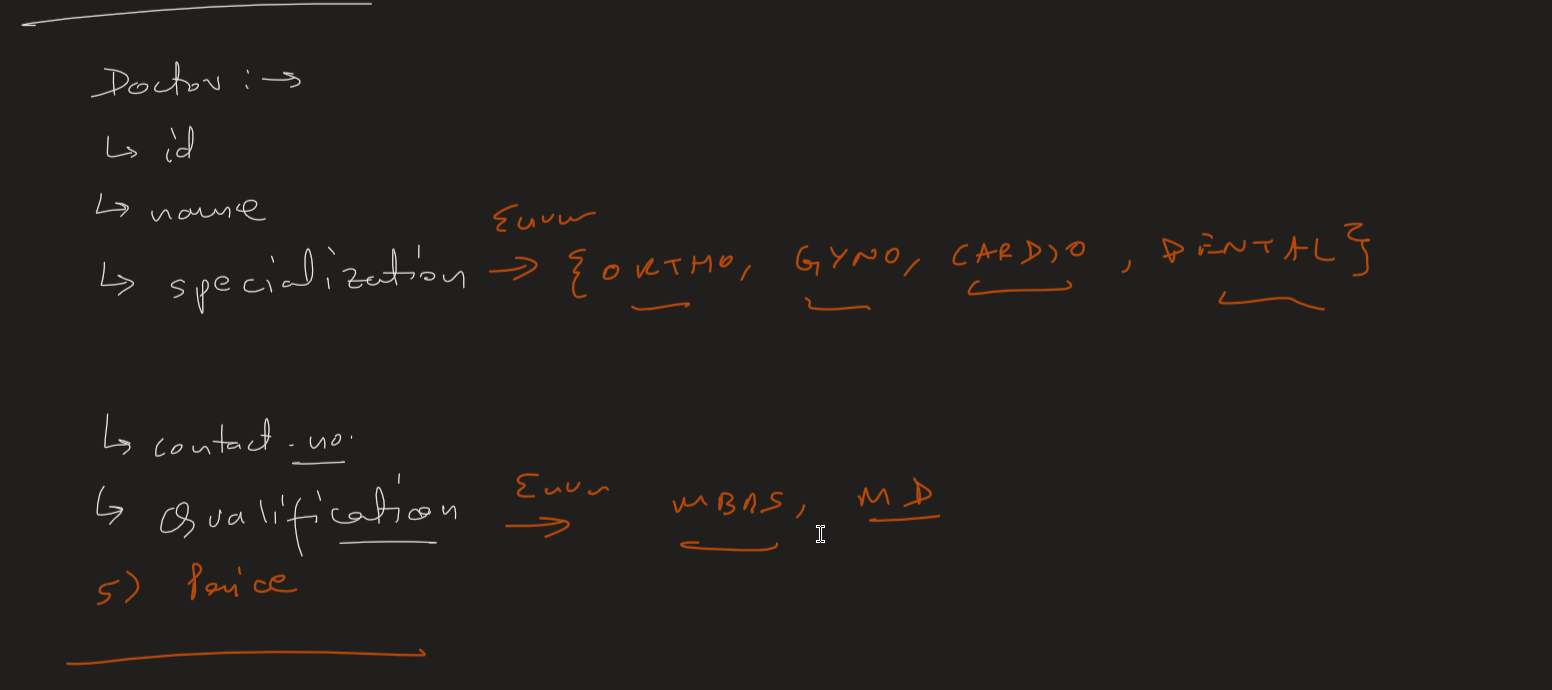 Doctor : →
↳ id
↳ name
Enum
↳ specialization → { ORTHO, GYNO, CARDIO, DENTAL }
↳ contact-no.
Enum
↳ Qualification → MBBS, MD
5) Price